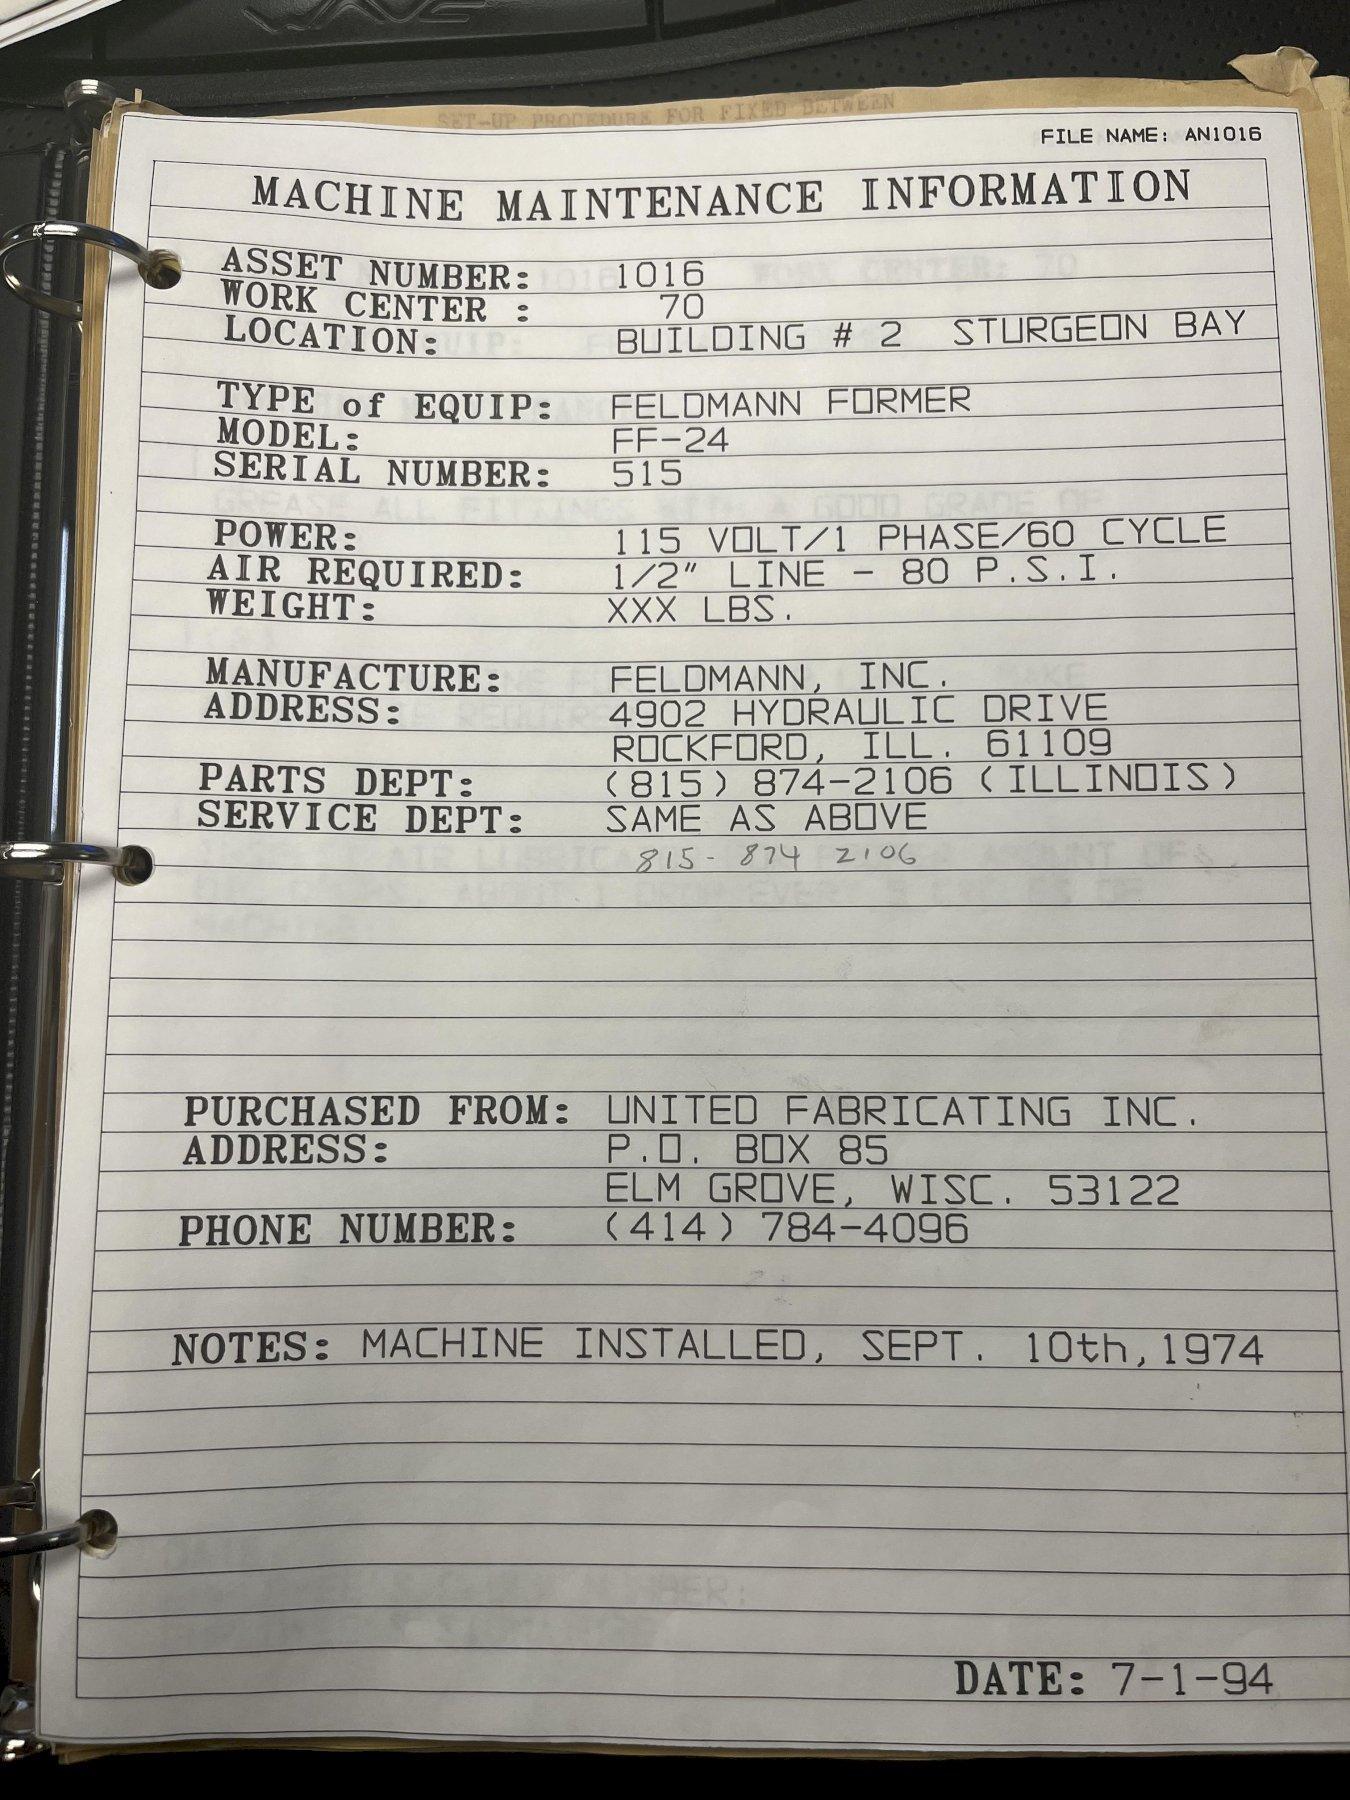 WAVE
SET-UP PROCEDURE FOR FIXED BETWEEN
FILE NAME: AN1016
MACHINE MAINTENANCE INFORMATION
ASSET NUMBER: 1016
WORK CENTER : 70
LOCATION: BUILDING # 2 STURGEON BAY
TYPE of EQUIP: FELDMANN FORMER
MODEL: FF-24
SERIAL NUMBER: 515
POWER: 115 VOLT/1 PHASE/60 CYCLE
AIR REQUIRED: 1/2" LINE - 80 P.S.I.
WEIGHT: XXX LBS.
MANUFACTURE: FELDMANN, INC.
ADDRESS: 4902 HYDRAULIC DRIVE
ROCKFORD, ILL. 61109
PARTS DEPT: (815) 874-2106 (ILLINOIS)
SERVICE DEPT: SAME AS ABOVE
815- 874 2106
PURCHASED FROM: UNITED FABRICATING INC.
ADDRESS: P.O. BOX 85
ELM GROVE, WISC. 53122
PHONE NUMBER: (414) 784-4096
NOTES: MACHINE INSTALLED, SEPT. 10th, 1974
DATE: 7-1-94